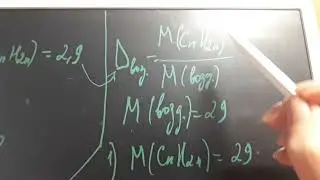 H2n) = 2,9
Dвозд. = M(CnH2n) / M(возд.)
M(возд.) = 29
1) M(CnH2n) = 29 ·